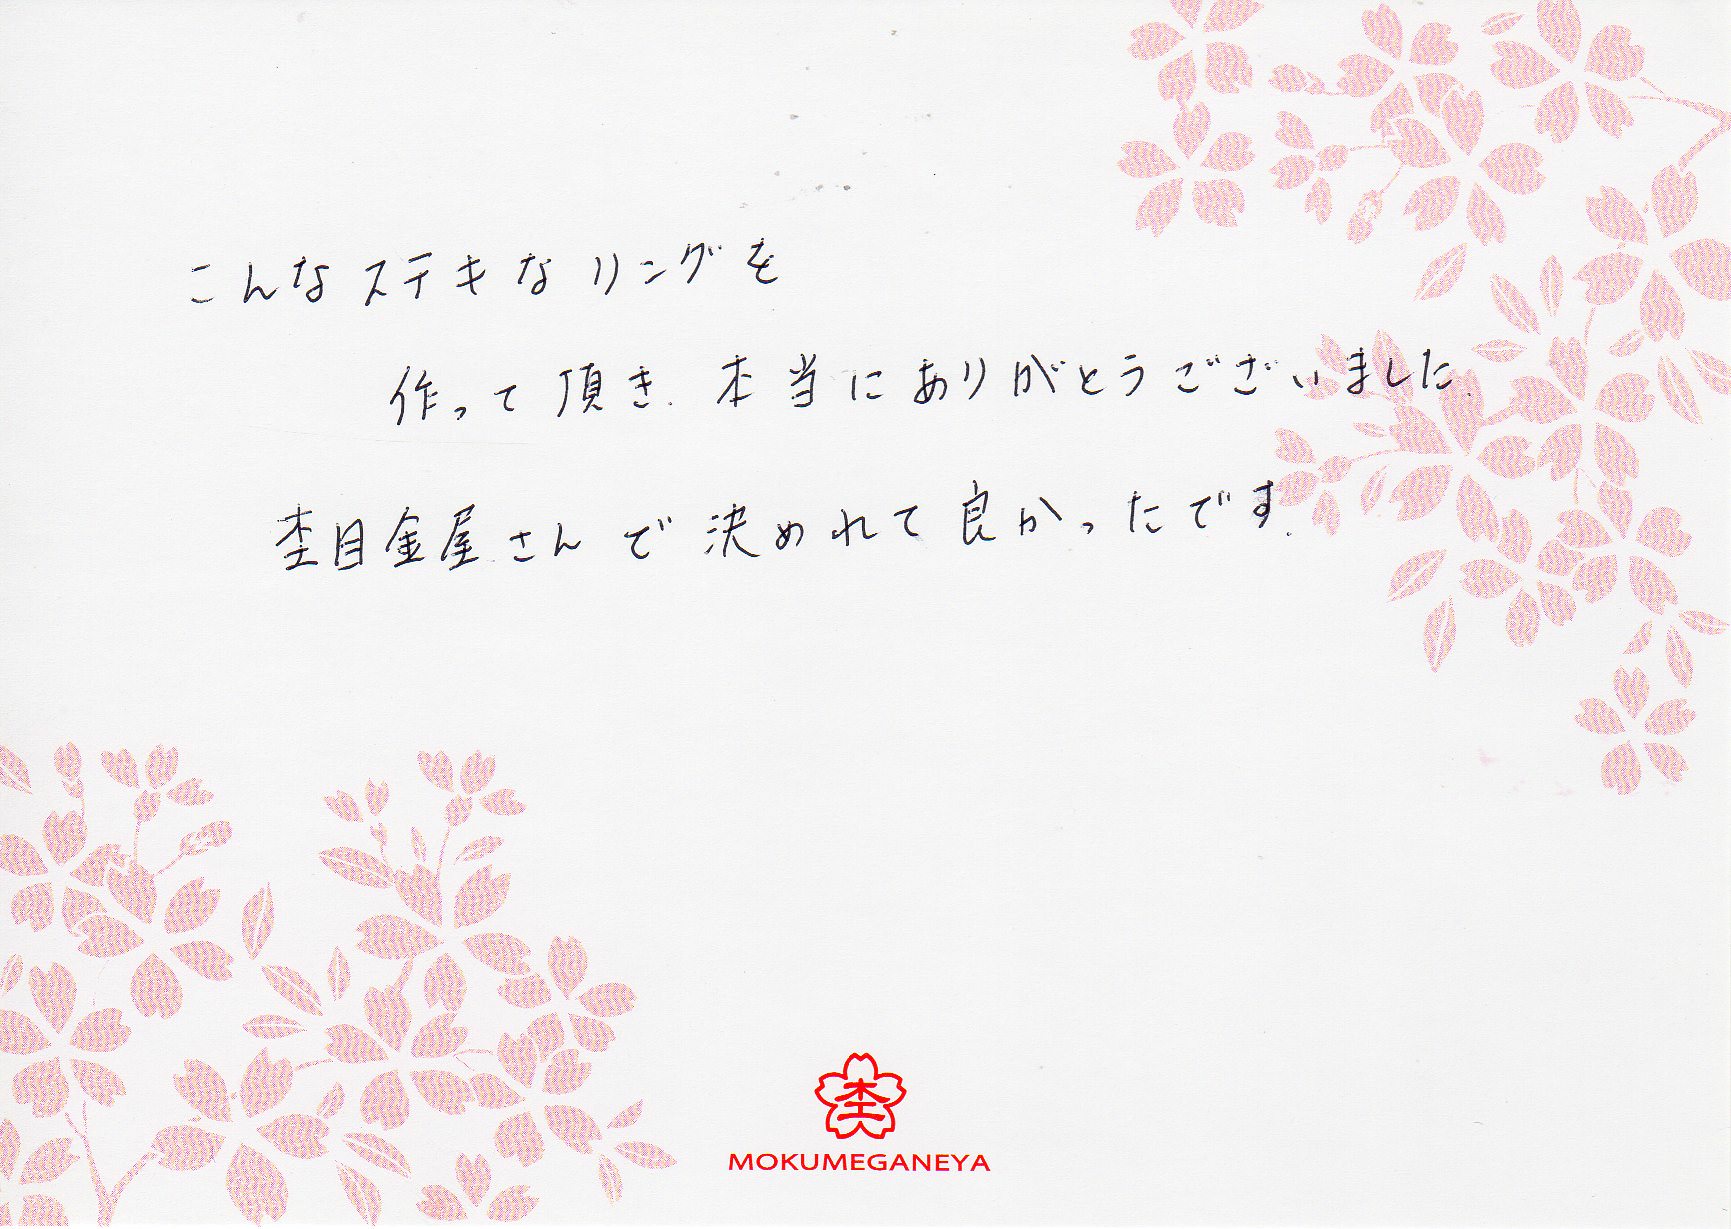 こんなステキなリングを
作って頂き.本当にありがとうございました.
杢目金屋さんで決めれて良かったです.
杢
MOKUMEGANEYA